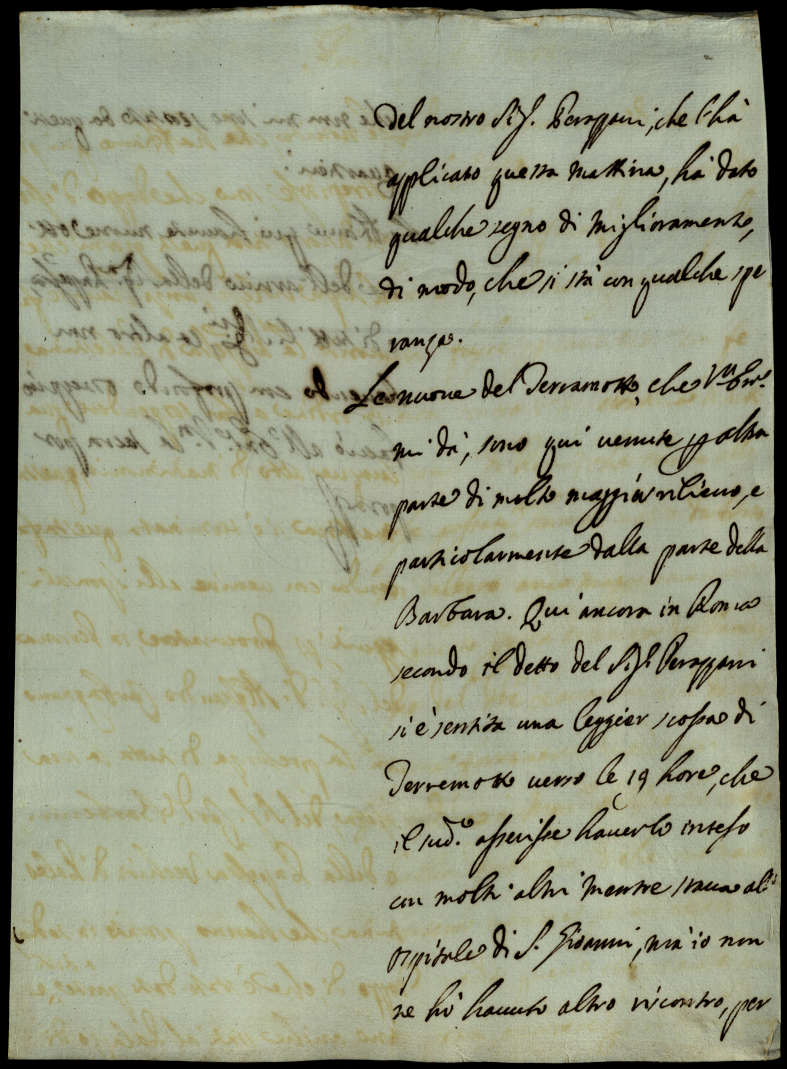 del nostro Sig.r Perappani, che l'hà
applicato questa mattina, hà dato
qualche segno di miglioramento,
di modo, che si stà con qualche spe
ranza.
Le nuove del Terramotto, che V.ra Em.za
mi dà, sono qui venute per altra
parte di molto maggior rilievo, e
particolarmente dalla parte della
Barbara. Qui ancora in Roma
secondo il detto del Sig.r Perappani
si è sentita una leggier scossa di
Terremotto verso le 19 hore, che
il sud.o asserisse haverlo inteso
con molti altri mentre stava all'
ospitale di S. Gioanni, mà io non
ne hò havuto altro riscontro, per